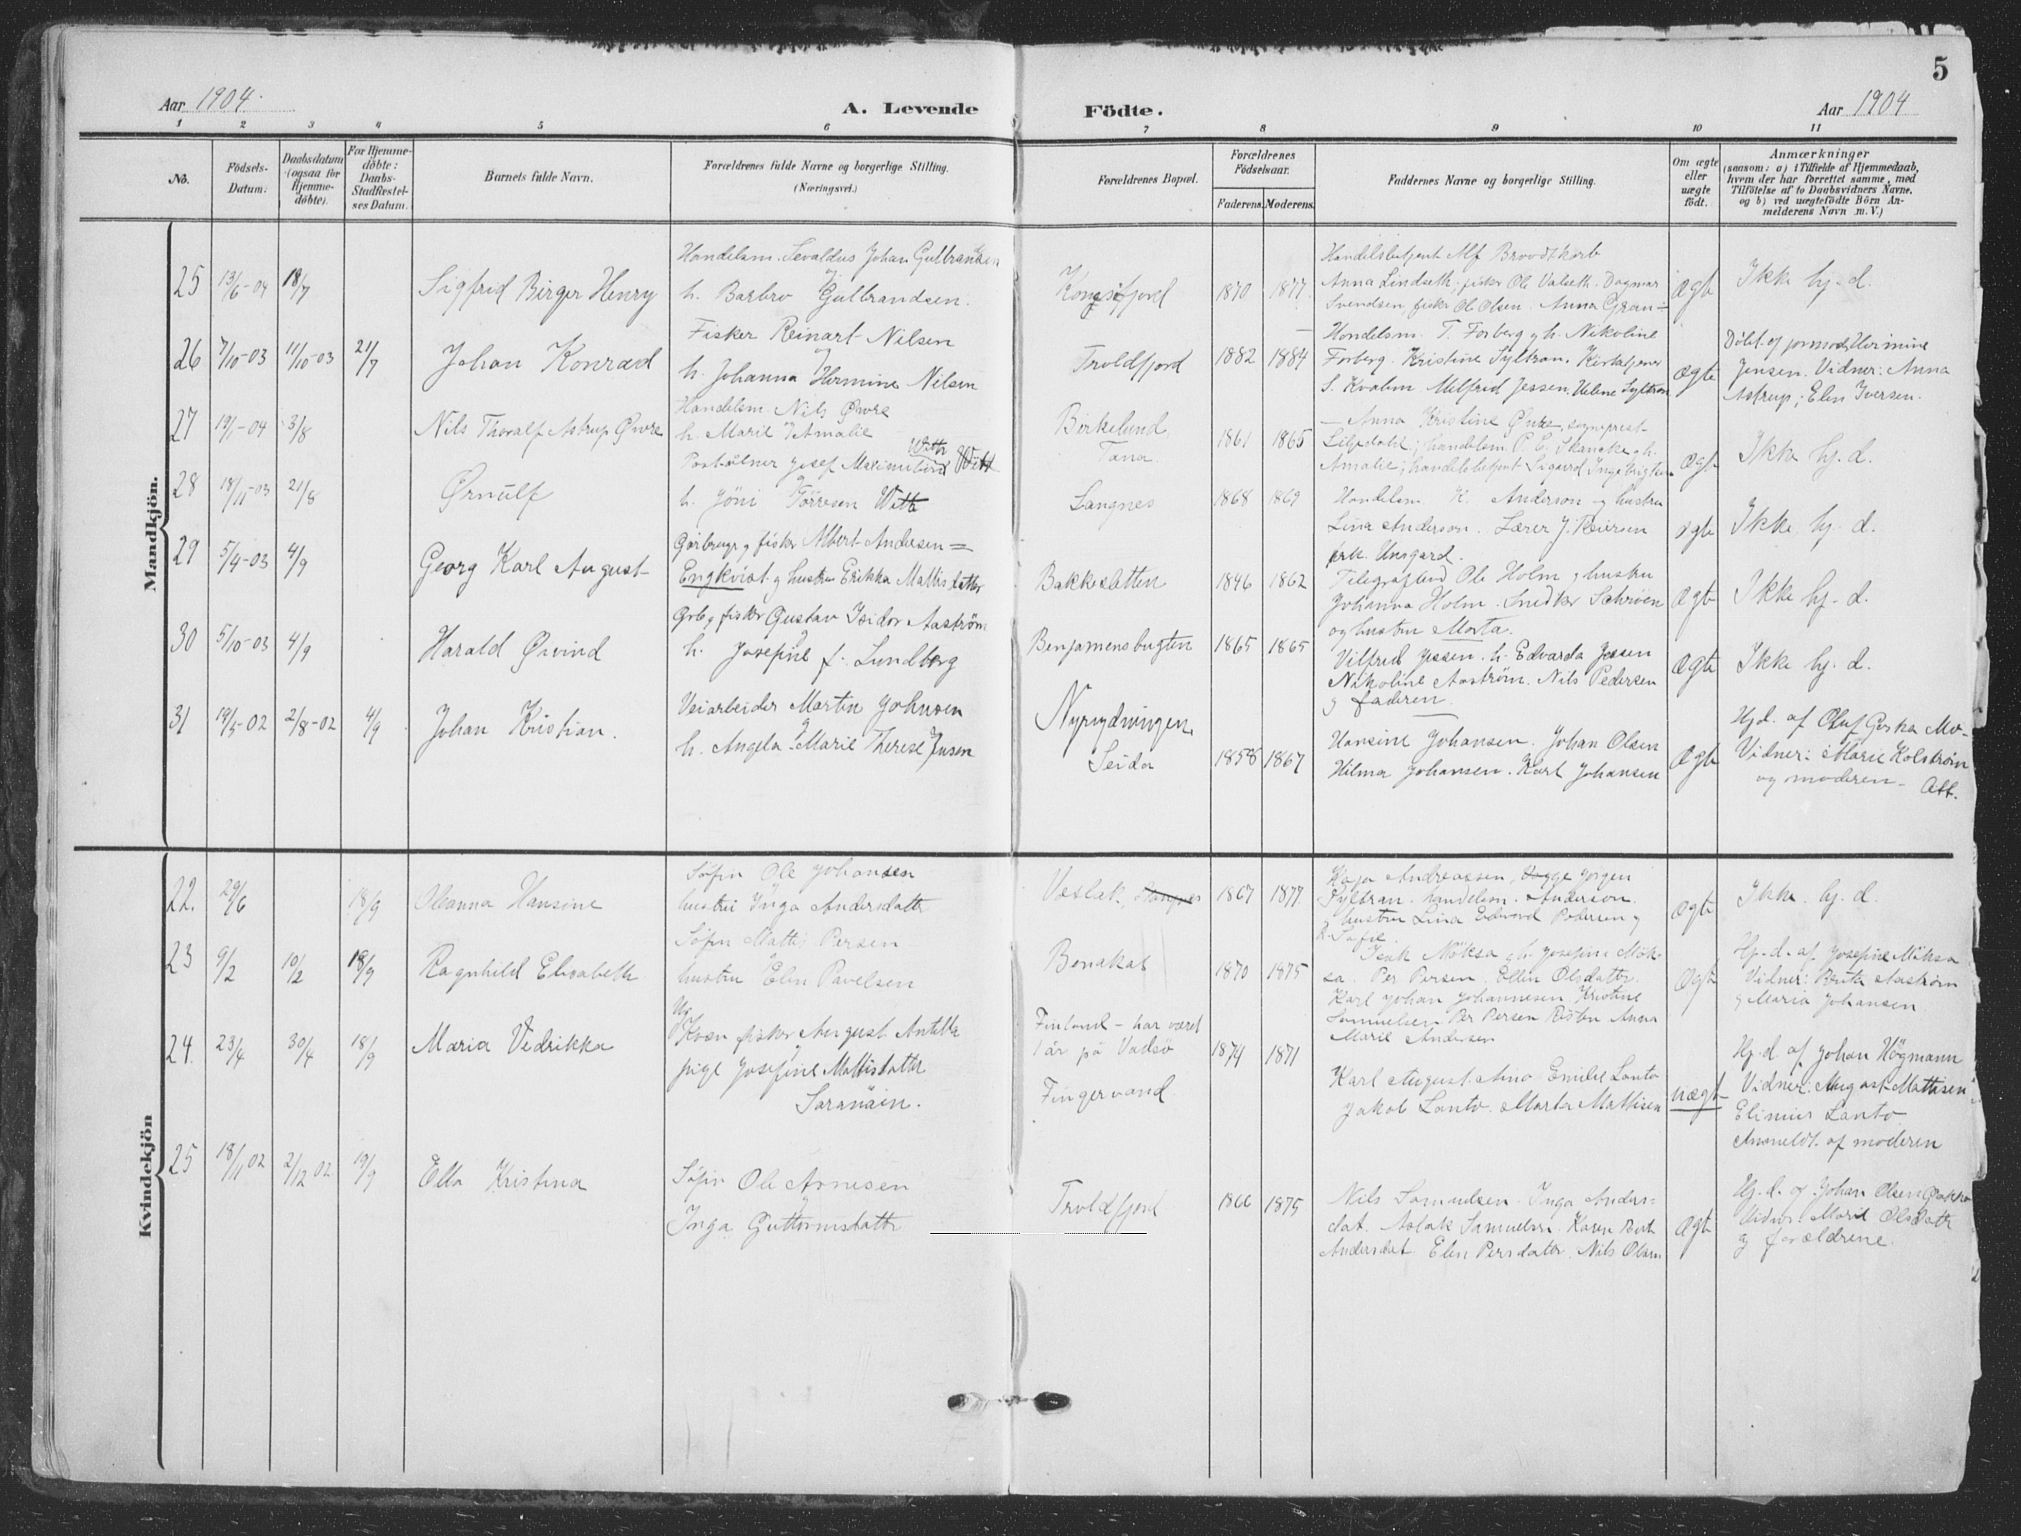 5
Aar 1904.
A. Levende Födte.
Aar 1904
1 2 3 4 5 6 7 8 9 10 11
No.
Födsels-Datum:
Daabsdatum (ogsaa for Hjemme-döbte).
For Hjemme-döbte: Daabs-Stadfæstel-ses Datum.
Barnets fulde Navn.
Forældrenes fulde Navne og borgerlige Stilling. (Næringsvei.)
Forældrenes Bopæl.
Forældrenes Födselsaar.
Faderens. Moderens.
Faddernes Navne og borgerlige Stilling.
Om ægte eller uægte födt.
Anmærkninger
(saasom: a) i Tilfælde af Hjemmedaab, hvem der har forrettet samme, med Tilföielse af to Daabsvidners Navne, og b) ved uægtefödte Börn An-melderens Navn m. V.)
Mandkjön.
25 13/6-04 18/7 Sigfred Birger Henry
Handelsm. Sevaldus Johan Gulbrandsen
h. Barbro Gulbrandsen.
Kongsfjord 1870 1877
Handelsbetjent Alf Broodtkorb
Anna Lindseth, fisker Ol Valseth. Dagmar
Svendsen, fisker Ol Olsen. Anna Gran-
Ægte Ikke hj. d.
26 7/10-03 11/10-03 21/7 Johan Konrad
Fisker Reinart Nilsen
h. Johanna Hermine Nilsen
Troldfjord 1882 1884
Handelsm. T. Forberg og h. Nikoline
Forberg. Kristine Syltran. Kirketjener
S. Kvalm Milfred Jessen, Syltran
ægte
Døbt af jormod. Hermine
Jensen. Vidner: Anna
Astrup, Elen Iversen.
27 19/1-04 3/8 Nils Thoralf Astrup Øvre
Handelsm. Nils Øvre
h. Marie Amalie
Birkelund, Tana. 1861 1865
Anna Kristine Øvre, sogneprest
Lilfdahl; handelsm. P. E. Skancke og h.
Amalie; handelsbetjent Sigurd Ingebrigtsen
ægte Ikke hj. d.
28 18/11-03 21/8 Ørnulf
Witt
Postaabner Josef Maximilian Witt
h. Jöni Törresen Witt
Langnes 1868 1869
Handelsm. K. Anderson og hustru
Lina Anderson. Lærer J. Reiersen
frk. Ursgard.
ægte Ikke hj. d.
29 5/9-03 4/9 Georg Karl August
Gårbruger og fisker Albert Andersen =
Engkvist og hustru Erikka Mattisdatter
Bakkesletten 1846 1862
Telegrafbud Ole Holm og hustru
Johanna Holm. Snedker Schrøen
og hustru Marta.
Ægte Ikke hj. d.
30 5/10-03 4/9 Harald Øivind
Grb og fisker Gustav Isidor Aaström
h. Josefine f. Lundberg
Benjamensbugten 1865 1865
Vilfred Jessen. h. Edvarda Jessen
Nikoline Aastrøm. Nils Pedersen
og faderen.
ægte Ikke hj. d.
31 19/5-02 2/8-02 4/9 Johan Kristian.
Veiarbeider Martin Johnsen
h. Angela Marie Therese Jnsen
Nyrydningen, Seida 1858 1867
Hansine Johansen. Johan Olsen
Hilma Johansen. Karl Johansen
ægte
Hj. d. af Oluf Geska Mo-
Vidner: Marie Kolstrøm
og moderen-
Kvindekjön
22. 29/6 18/9 Oleanna Hansine
Søfin Ole Johansen
hustru Inga Andersdatter
Veslak, Langnes 1867 1877
Kaja Andreassen, Jørgen
Syltran. handelsm. Anderson.
hustru Lina Edvard Pedersen og
ægte Ikke. hj. d.
23 9/2 10/2 18/9 Ragnhild Elisabeth
Søfin Mattis Persen
hustru Elen Pavelsen
Bonakas 1870 1875
Isak Möksa og h. Josefine Mök-
sa. Per Persen. Ellen Olsdatter.
Karl Johan Johannesen, Kristine
Samuelsen Per Persen Risten Anna
Marie Andersen
ægte
Hj. d. af Josefine Möksa
Vidner: Aastrøm
og Maria Johansen
24. 23/4 30/4 18/9 Maria Vedrikka
Kvæn fisker August Antilla
pige Josefine Mattisdatter
Saranäin.
Finland - har været
1 år på Vadsö
Fingervand
1874 1871
Karl August Aino. Emilie Lanto
Jakob Lanto. Marta Mattisen
uægte
Hj. d af Johan Högmann
Vidner: August Mattisen
Elinius Lanto
Anmeldt af moderen
25 18/11 02 2/12 02 19/9 Ella Kristina
Søfin Ole Arnesen
Inga Guttormsdatter
Troldfjord 1866 1875
Nils Samuelsen. Inga Anders-
dat. Aslak Samuelsen. Karen Berit
Andersdat. Elen Persdatter. Nils Olsen
ægte
Hj. d. af Johan Olsen
Vidner: Marit Olsdatter
og forældrene.